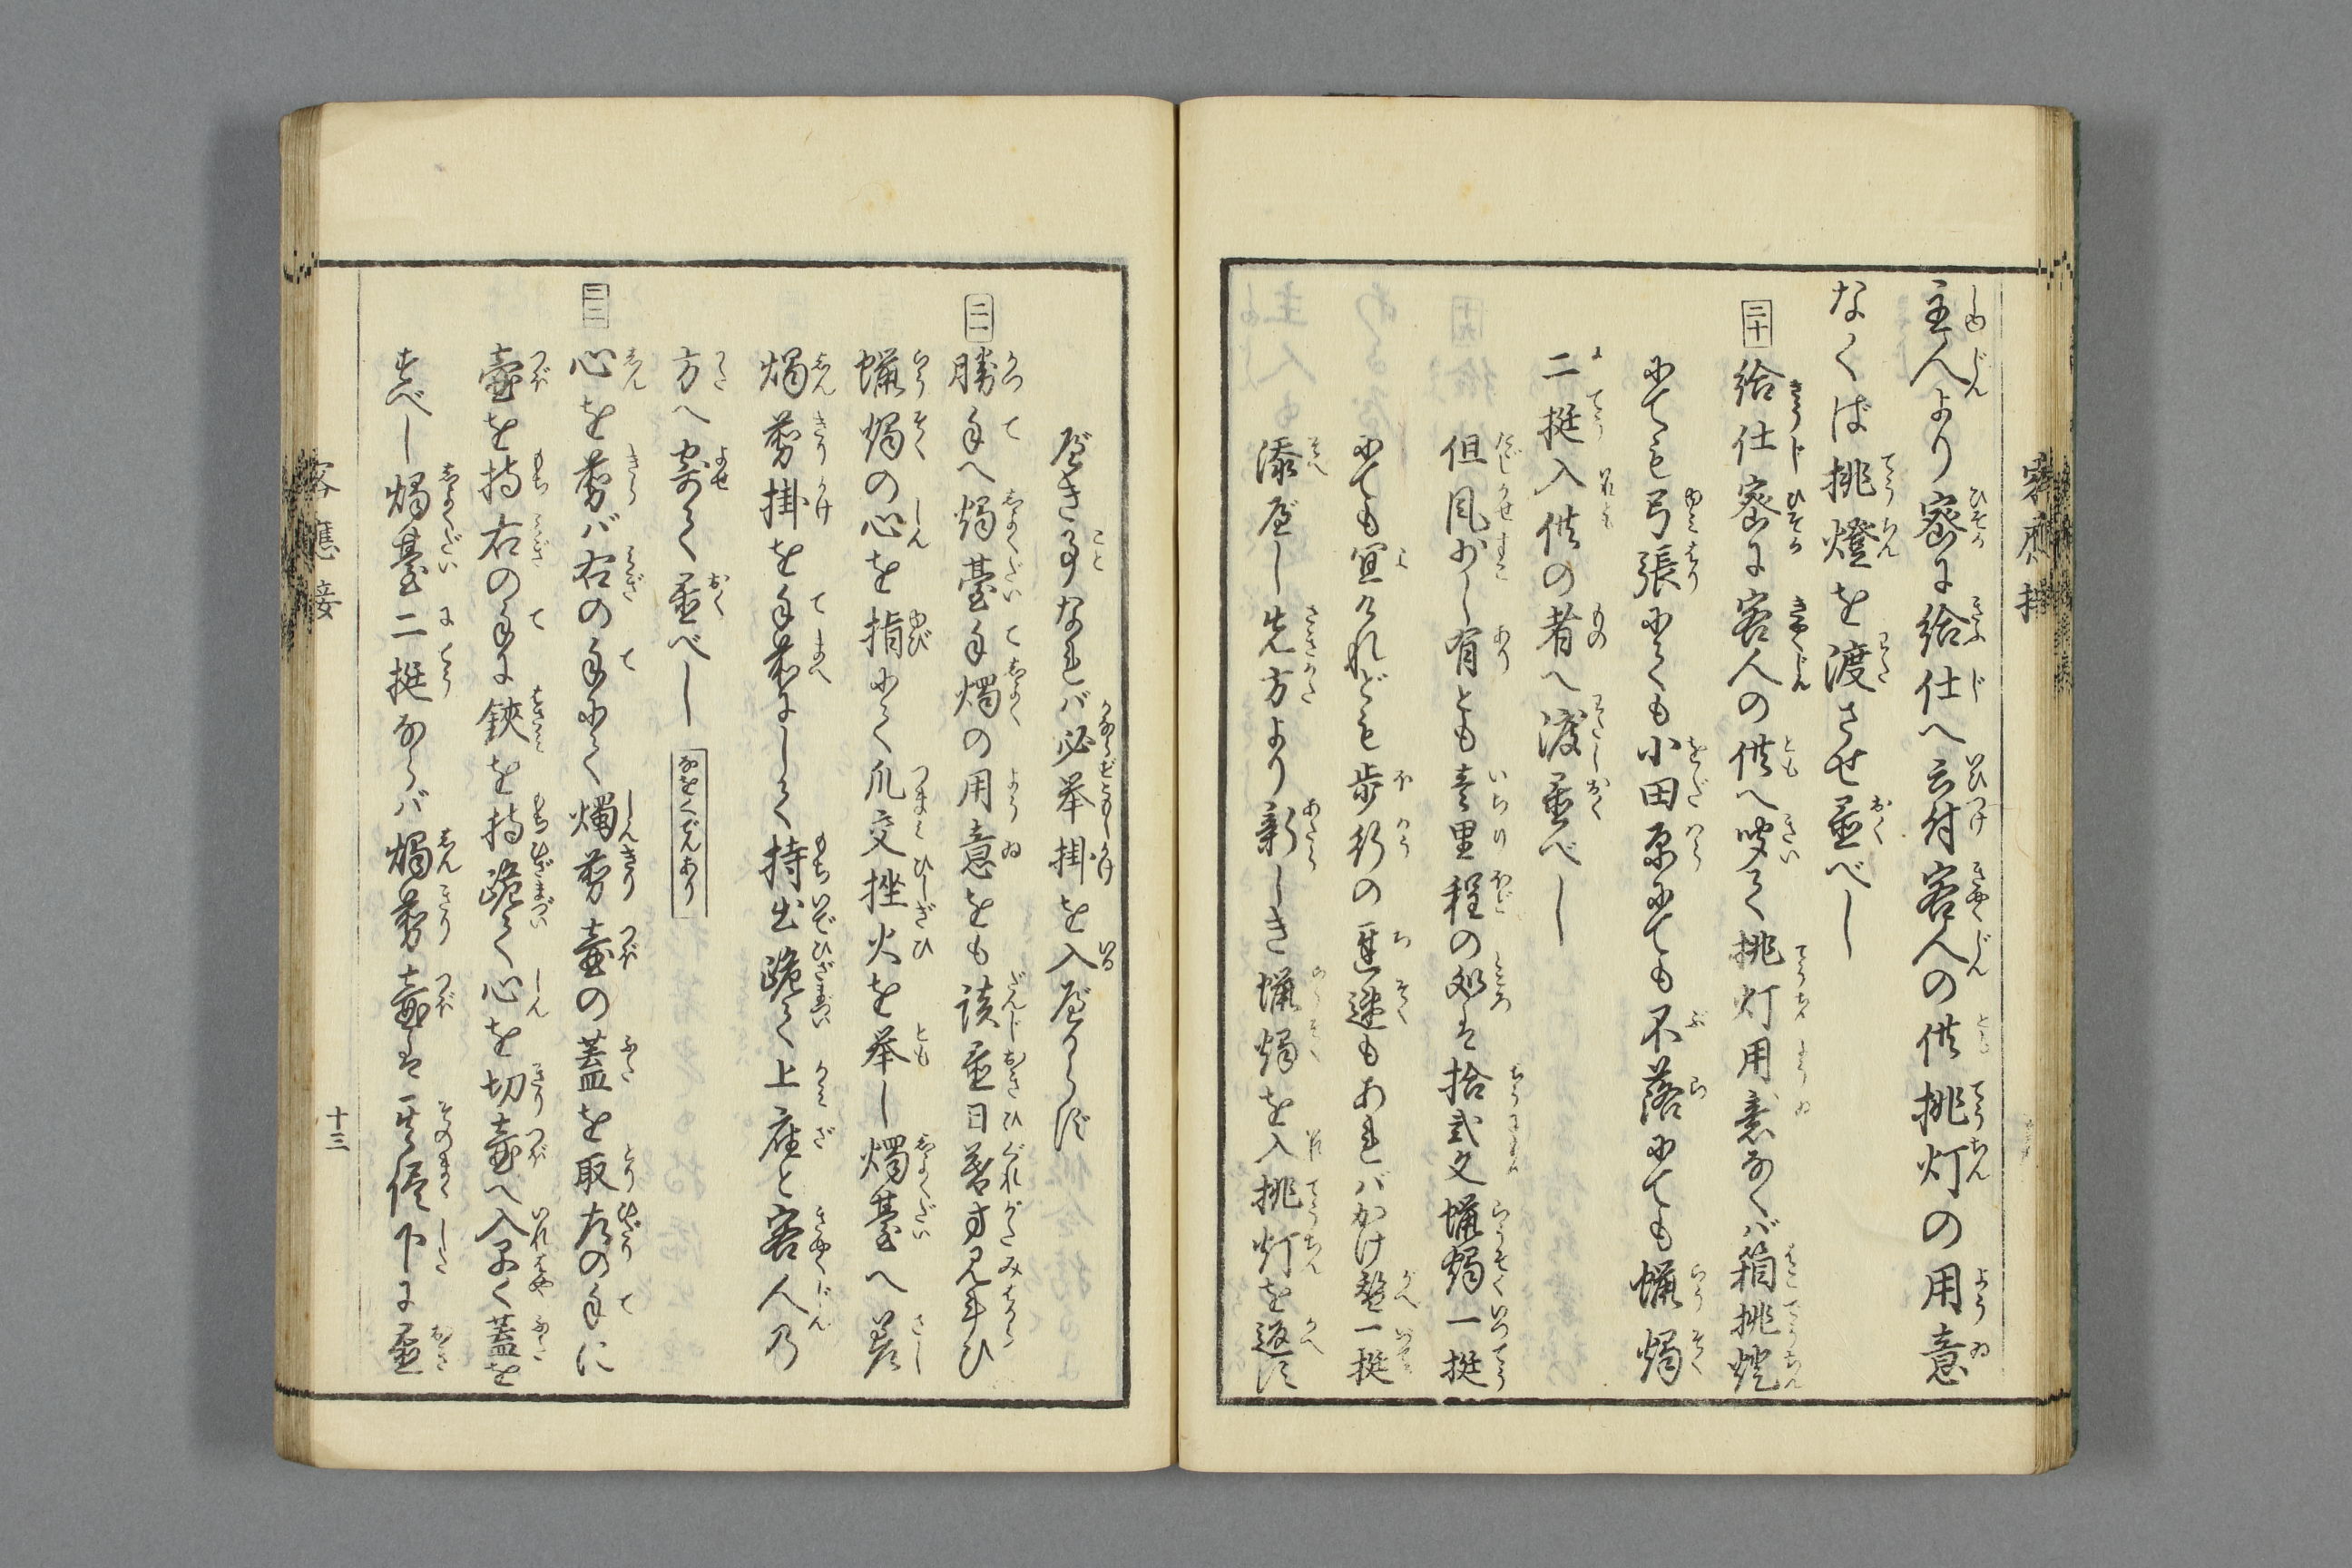 主人より密に給仕へ云付客人の供挑灯の用意
なくば挑燈を渡させ置べし
二十 給仕密に客人の供へ聞て挑灯用意なくバ箱挑燈
にても弓張にても小田原にても不落にても蝋燭
二挺入供の者へ渡置べし
但風少し有とも壱里程の処は拾弐文蝋燭一挺
にても宜けれども歩行の遅速もあれバかけ替一挺
添べし先方より新しき蝋燭を入挑灯を返す
べき事なれバ必挙掛を入べからず
二一 勝手へ燭臺手燭の用意をも談置日暮方見計ひ
蝋燭の心を指にて爪交挫火を挙し燭臺へ差
燭剪掛を手前にして持出跪て上座と客人乃
方へ寄て置べし なをくでんあり
二二 心を剪バ右の手にて燭剪壷の蓋を取左の手に
壷を持右の手に鋏を持跪て心を切壷へ入早く蓋を
すべし燭臺二挺ならバ燭剪壷は其侭下に置
客應接
十三